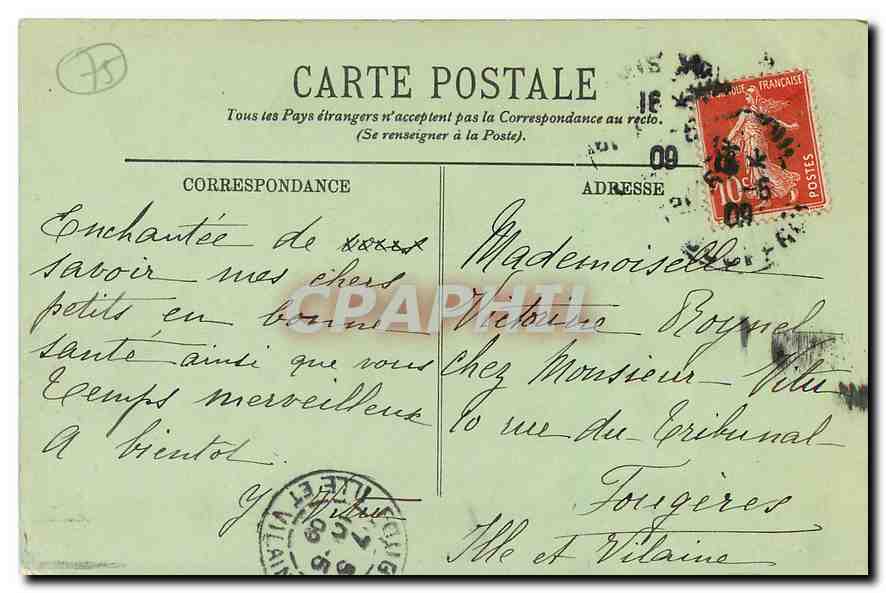 75
CARTE POSTALE
Tous les Pays étrangers n'acceptent pas la Correspondance au recto.
(Se renseigner à la Poste).
CORRESPONDANCE
Enchantée de
savoir mes chers
petits en bonne
santé ainsi que vous
Temps merveilleux
A bientôt.
Y Vitu
ADRESSE
Mademoiselle
Victorine Roynel
chez Monsieur Vitu
10 rue du Tribunal
Fougères
Ille et Vilaine
FRANÇAISE
10c
POSTES
09
09
ILLE ET VILAINE
CPAPHIL